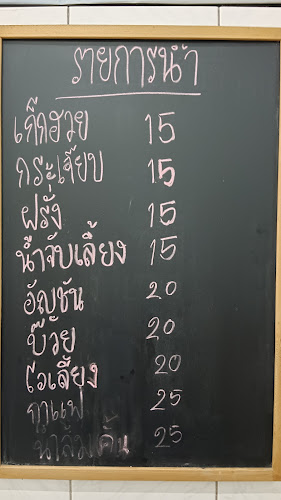 รายการน้ำ
เก๊กฮวย 15
กระเจี๊ยบ 15
ฝรั่ง 15
น้ำจับเลี้ยง 15
อัญชัน 20
บ๊วย 20
โอเลี้ยง 20
กาแฟ 25
น้ำส้มคั้น 25